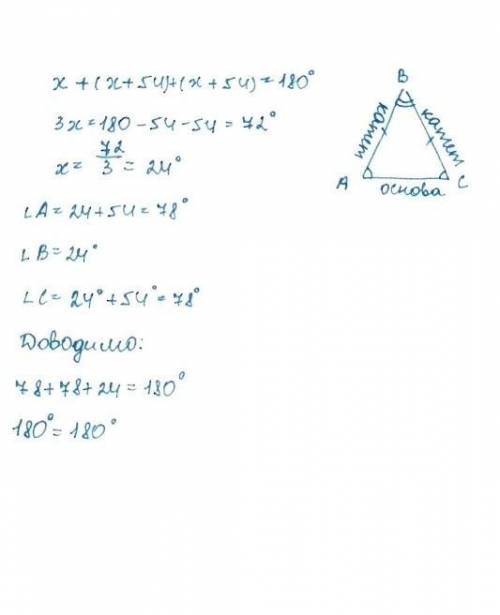 x + (x+54)+(x+54)=180°
3x=180-54-54=72°
x= 72/3 = 24°
∠A=24+54=78°
∠B=24°
∠C=24°+54°=78°
Доводимо:
78+78+24=180°
180°=180°
B
катет
катет
A
основа
C